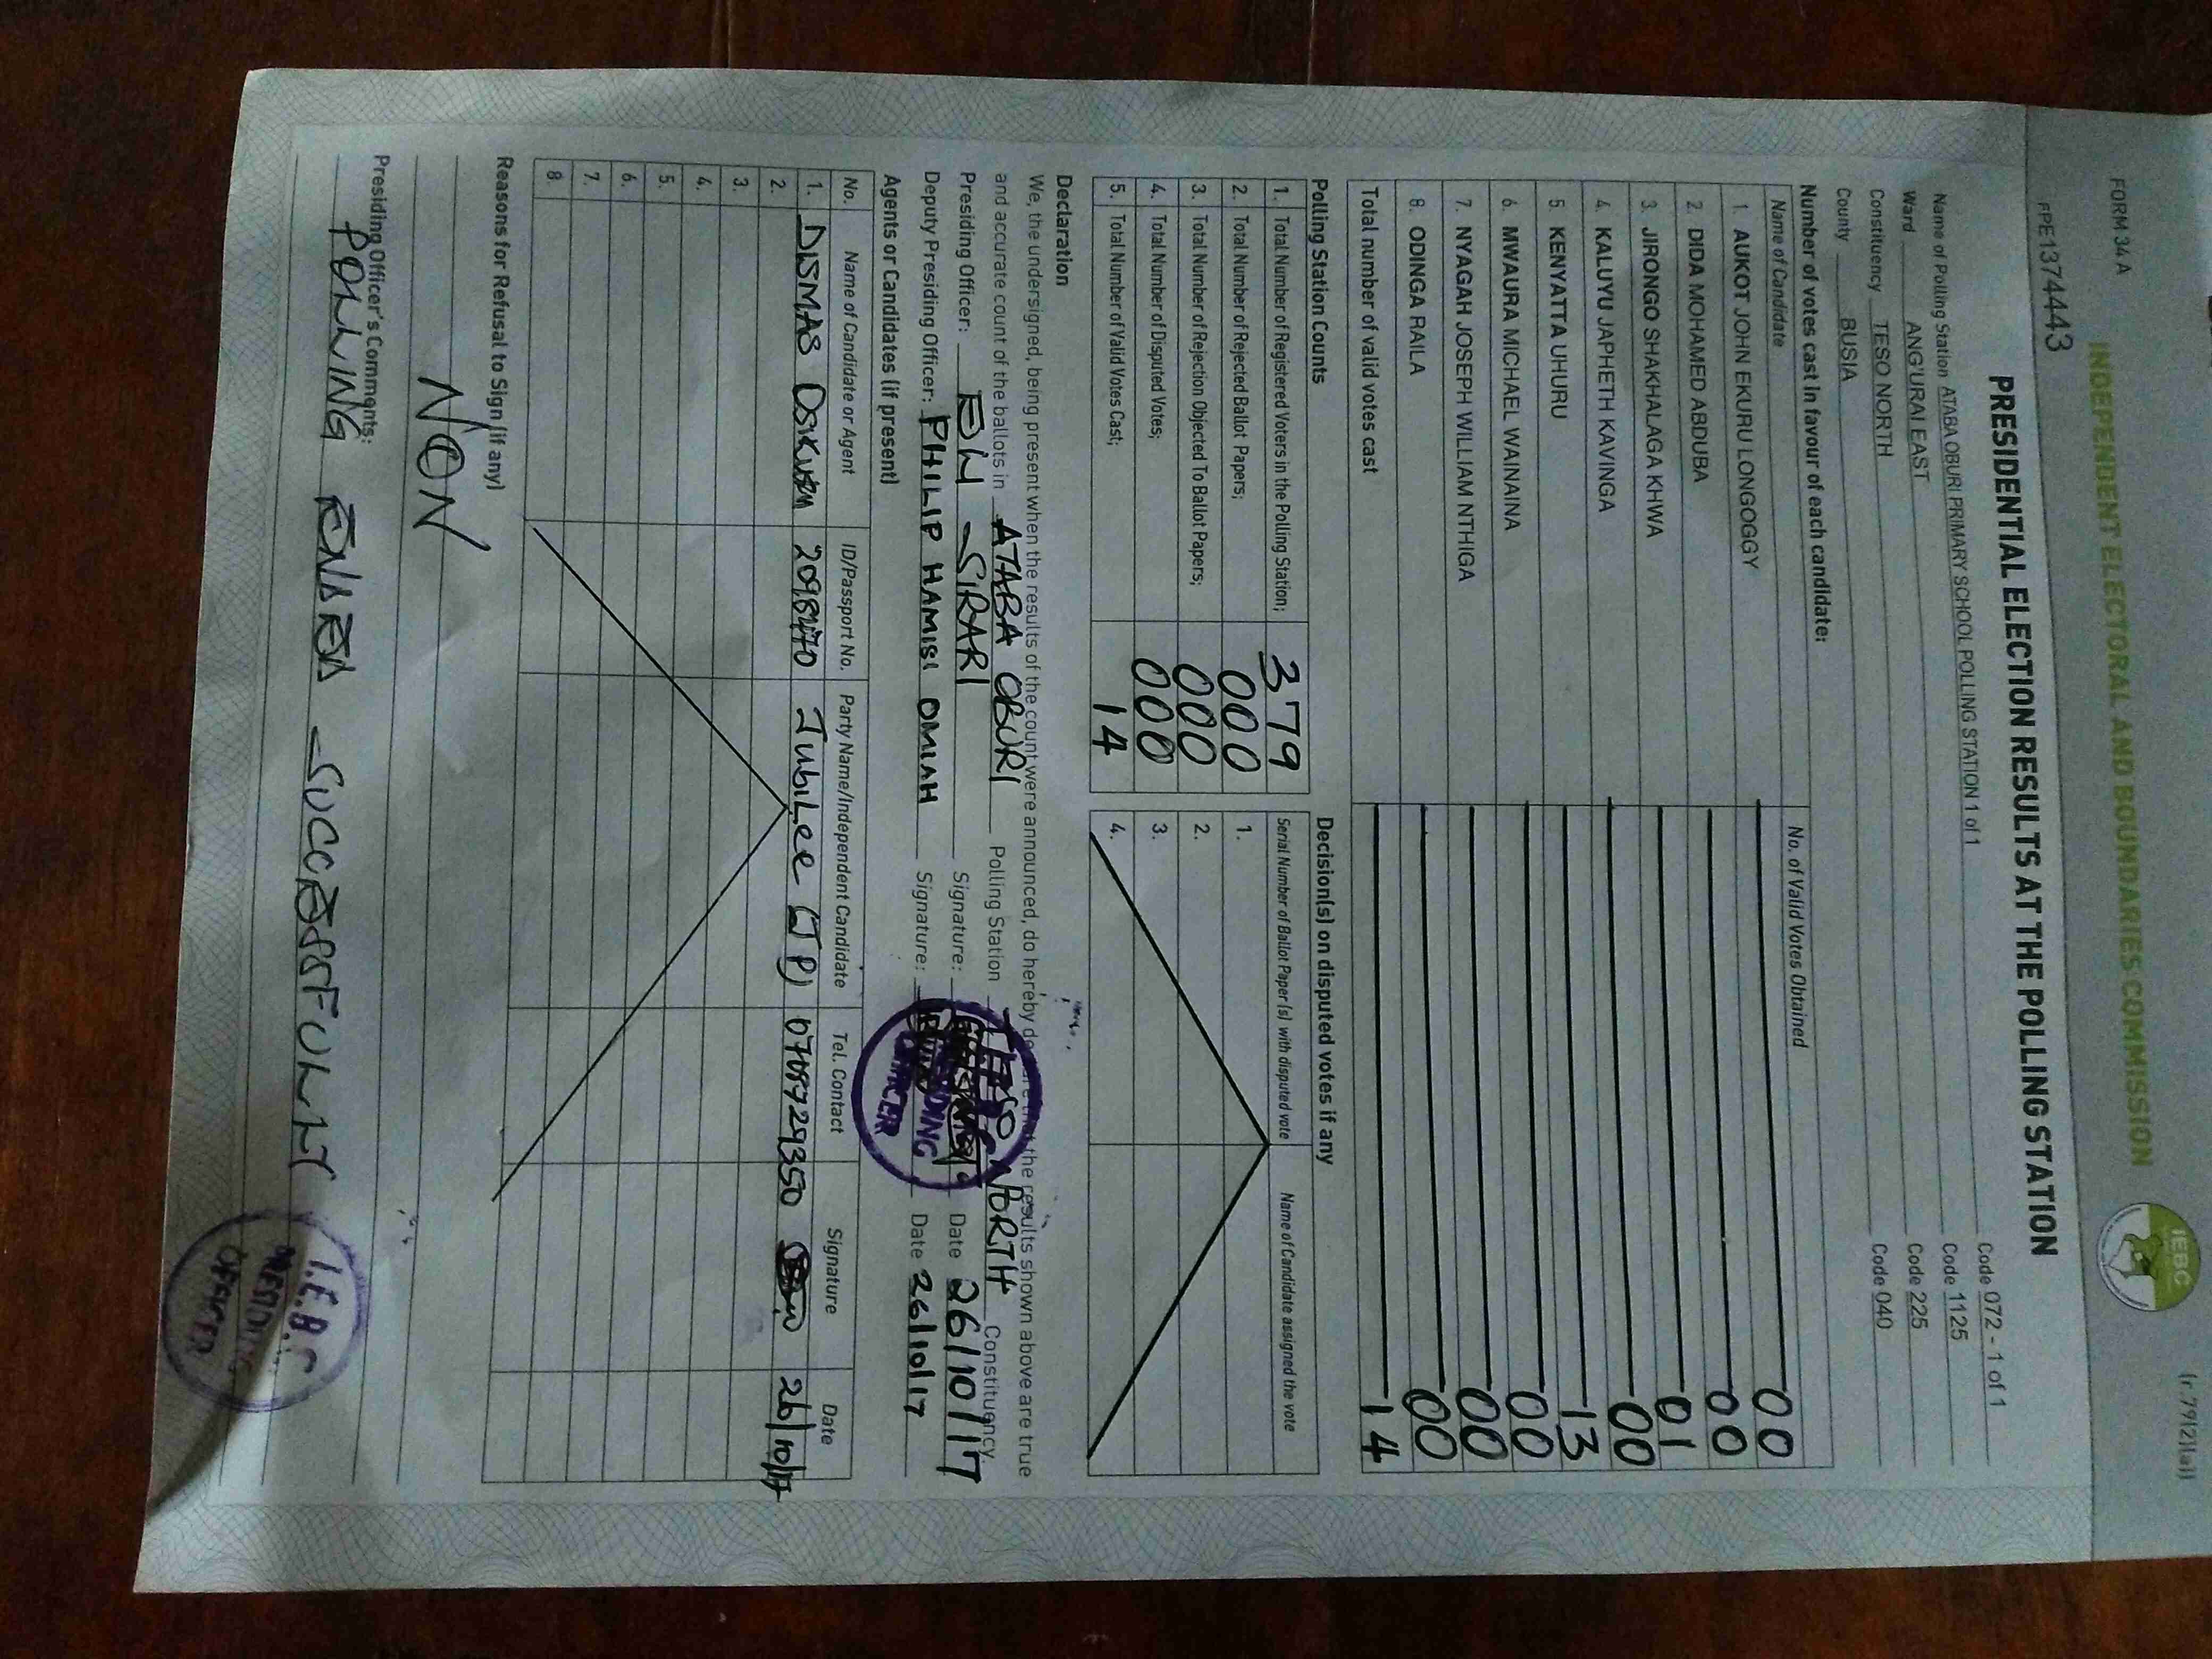 (r.79(2)(a))
FORM 34 A
INDEPENDENT ELECTORAL AND BOUNDARIES COMMISSION
IEBC
FPE1374443
PRESIDENTIAL ELECTION RESULTS AT THE POLLING STATION
Name of Polling Station ATABA OBURI PRIMARY SCHOOL POLLING STATION 1 of 1 Code 072 - 1 of 1
Ward ANG'URAI EAST Code 1125
Constituency TESO NORTH Code 225
County BUSIA Code 040
Number of votes cast in favour of each candidate:
Name of Candidate No. of Valid Votes Obtained
1. AUKOT JOHN EKURU LONGOGGY 00
2. DIDA MOHAMED ABDUBA 00
3. JIRONGO SHAKHALAGA KHWA 01
4. KALUYU JAPHETH KAVINGA 00
5. KENYATTA UHURU 13
6. MWAURA MICHAEL WAINAINA 00
7. NYAGAH JOSEPH WILLIAM NTHIGA 00
8. ODINGA RAILA 00
Total number of valid votes cast 14
Polling Station Counts
1. Total Number of Registered Voters in the Polling Station; 379
2. Total Number of Rejected Ballot Papers; 000
3. Total Number of Rejection Objected To Ballot Papers; 000
4. Total Number of Disputed Votes; 000
5. Total Number of Valid Votes Cast; 14
Decision(s) on disputed votes if any
Serial Number of Ballot Paper (s) with disputed vote Name of Candidate assigned the vote
1.
2.
3.
4.
Declaration
We, the undersigned, being present when the results of the count were announced, do hereby the results shown above are true
and accurate count of the ballots in ATABA OBURI Polling Station TESO NORTH Constituency
Presiding Officer: SIRARI Signature: Date 26/10/17
Deputy Presiding Officer: PHILIP HAMISI OMIAH Signature: Date 26/10/17
PRESIDING
OFFICER
Agents or Candidates (if present)
No. Name of Candidate or Agent ID/Passport No. Party Name/Independent Candidate Tel. Contact Signature Date
1. DISMAS JubiLee (JP) 0708729350 26/10/17
2.
3.
4.
5.
6.
7.
8.
Reasons for Refusal to Sign (if any)
NON
Presiding Officer's Comments:
POLLING ENDED SUCCESSFULLY
I.E.B.C
PRESIDING
OFFICER